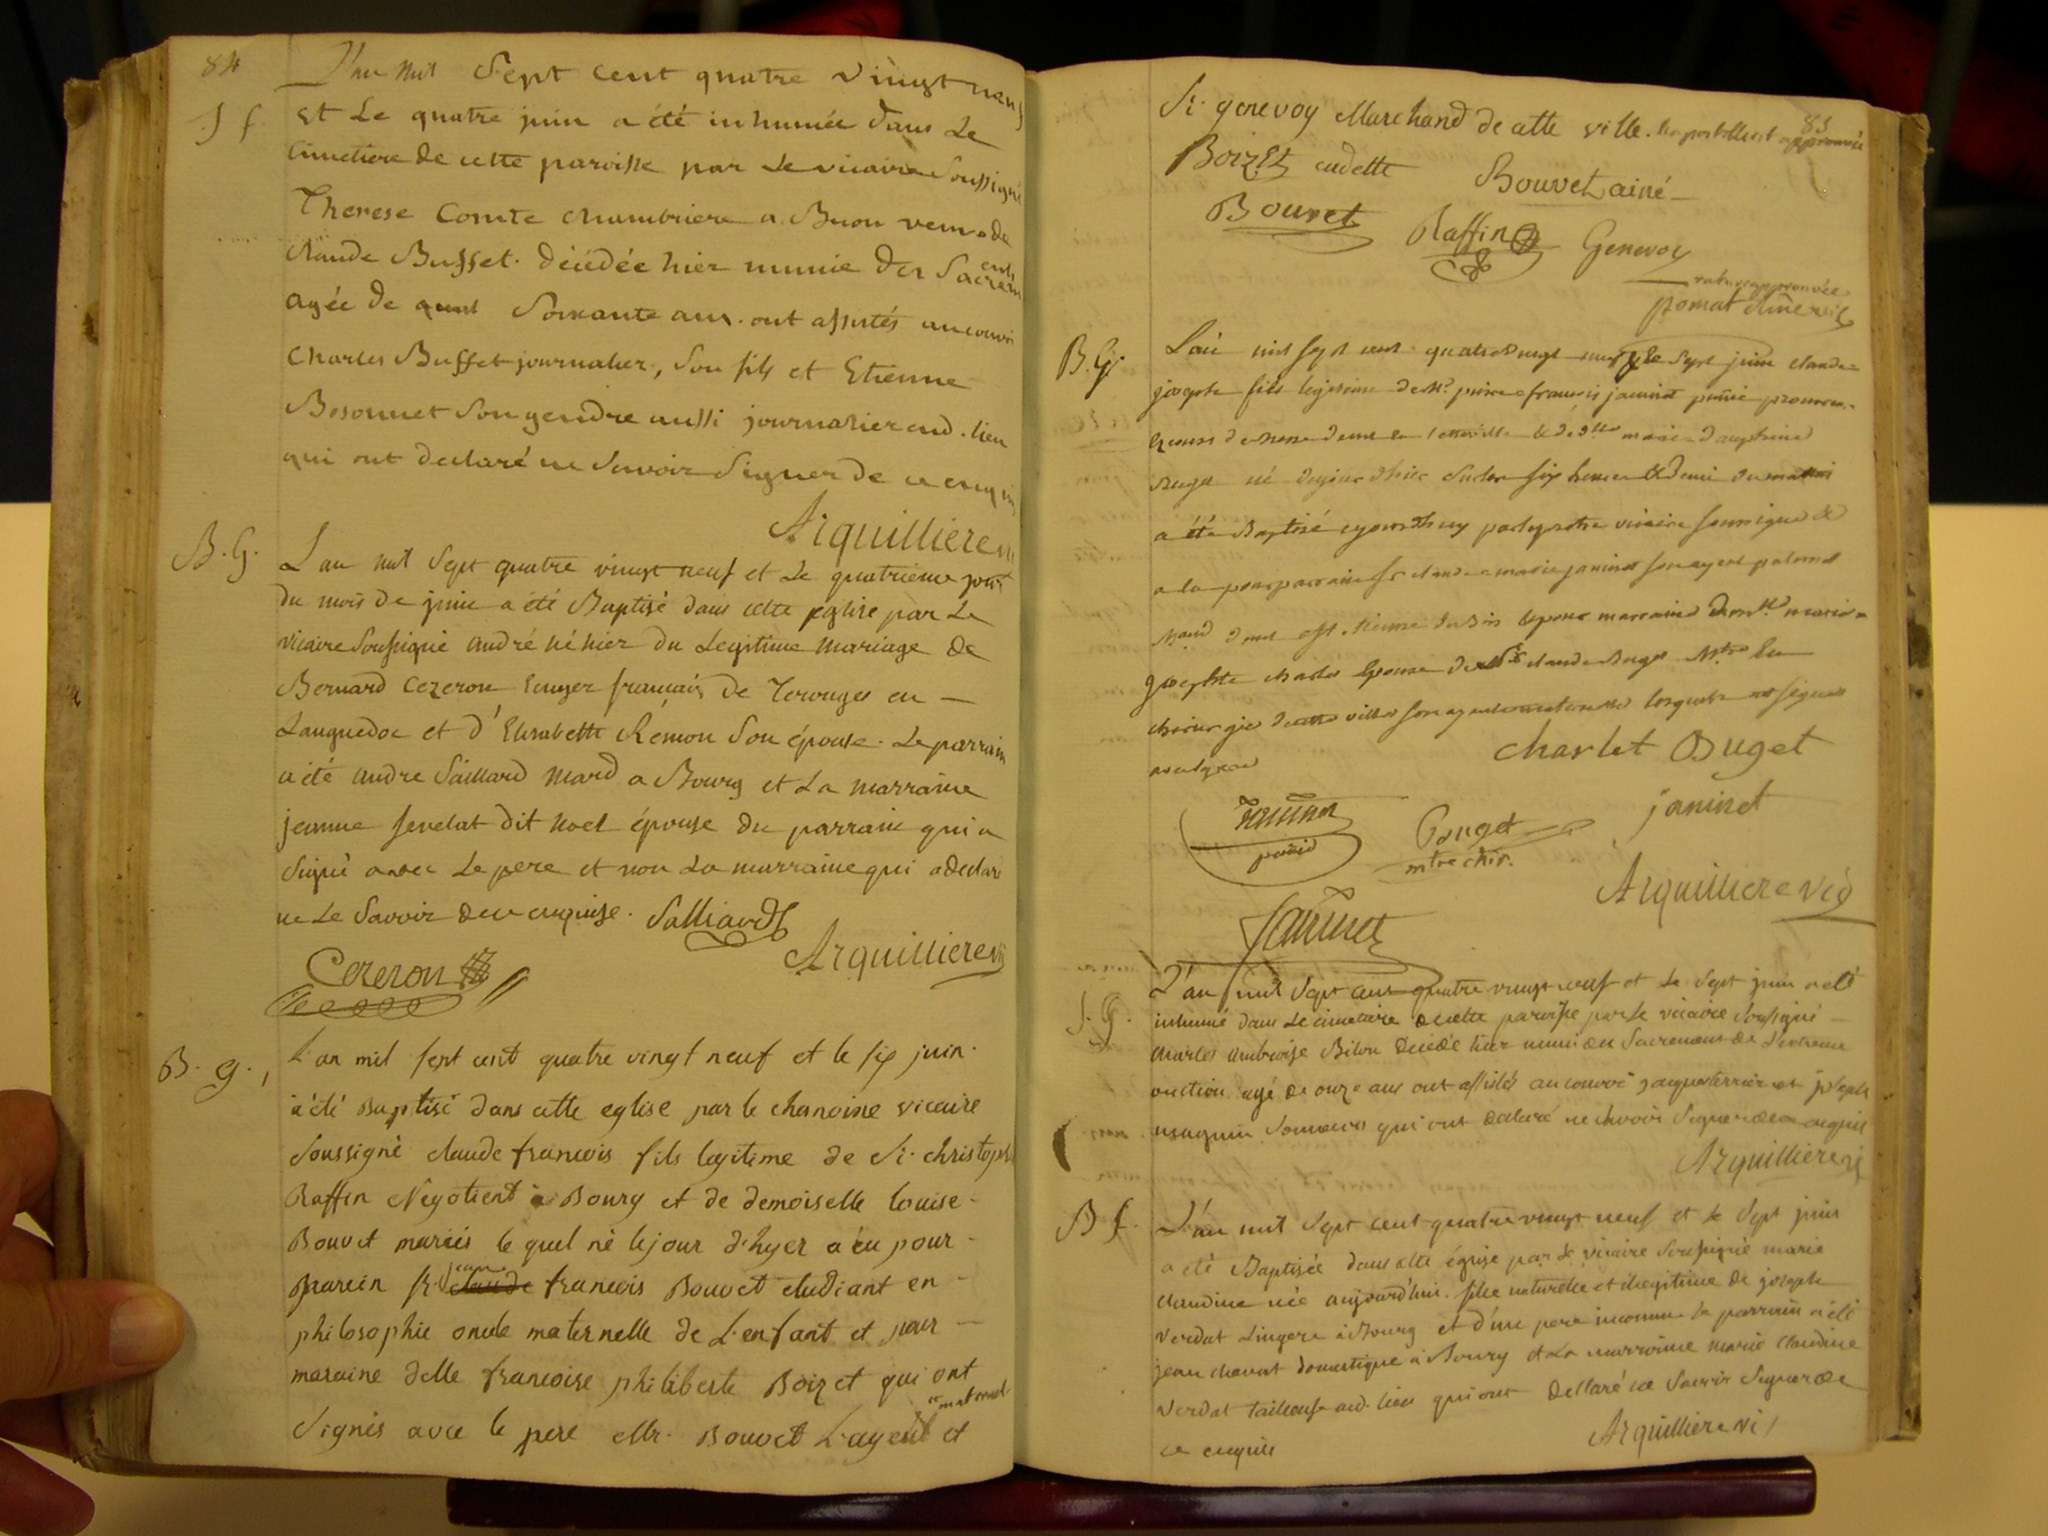 84
L'an mil Sept cent quatre vingt neuf
S f.
et Le quatre juin a été inhumée dans Le
Cimetiere de cette paroisse par Le vicaire Soussigné
Therese Comte chambriere a Buon veuve de
Claude Buffet. décédée hier munie des Sacrem ents
agée de Soixante ans. ont assistés au convoi
Charles Buffet journalier, Son fils et Etienne
Bosonnet Son gendre aussi journalier aud. lieu
qui ont declaré ne Savoir Signer de ce enquis
Arquilliere vi
B. G.
L'an mil Sept quatre vingt neuf et Le quatrieme jour
du mois de juin a été Baptisé dans cette eglise par Le
vicaire Soussigné André né hier du Legitime Mariage de
Bernard Cezeron Ecuyer francais de
Languedoc et d'Elisabeth Rémon Son épouse. Le parrain
a été André Saillard Mard a Bourg et La Marraine
jeanne sevelat dit Noel épouse du parrain qui a
Signé avec Le pere et non La marraine qui a declaré
ne Le Savoir de ce enquise. Salliard
Arquilliere vi
Cezeron
B. g.,
L'an mil sept cent quatre vingt neuf et le six juin.
à été Baptisé dans cette eglise par le chanoine vicaire
Soussigné claude francois fils legitime de Sr. christophe
Raffin Negotient à Bourg et de demoiselle louise-
Bouvet mariés le quel né le jour d'hyer a eu pour-
Parein Sr. jean claude francois Bouvet etudiant en-
philosophie oncle maternelle de L'enfant et pour-
maraine delle francoise philiberte Boizet qui ont
Signés avce le pere Mr. Bouvet L'ayeul maternel et
85
Sr. genevoy Marchand de cette ville. approuvée
Boizet cadette
Bouvet ainé
Bouvet
Raffin
Genevoy
rature approuvée
B. G.
L'an mil sept cent quatre vingt neuf & le sept juin claude
joseph fils legitime de Mr. pierre francois janinet
né du jour d'hier sur les six heures & demi du matin
a été Baptisé ce jourd'huy par le pretre vicaire soussigné &
a eu pour parrain Sr claude marie janinet son ayeul paternel
josephte charlet epouse de Sr claude Buget Mtre en
chirurgie de cette ville son ayeule maternelle lesquels ont signés
charlet Buget
Janinet
Buget
mtre chir.
janinet
Arquilliere vic
Janinet
S. G.
L'an mil Sept cens quatre vingt neuf et Le Sept juin a été
inhumé dans Le cimetiere de cette paroisse par Le vicaire Soussigné
Charles Ambroise Bilon decedé hier muni du Sacrement de L'extreme
onction agé de onze ans ont assistés au convoi jaques terrier et joseph
maguin Sonneurs qui ont declaré ne Savoir Signer de ce enquis
Arquilliere vi
B f.
L'an mil Sept cent quatre vingt neuf et Le Sept juin
a été Baptisée dans cette église par Le vicaire Soussigné marie
claudine née aujourd'hui. fille naturelle et illegitime de josephe
Verdat Lingere à Bourg et d'un pere inconnu Le parrain a été
jean chanat domestique à Bourg et La marraine marie Claudine
Verdat tailleuse aud. lieu qui ont declaré ne Savoir Signer de
ce enquis
Arquilliere vi